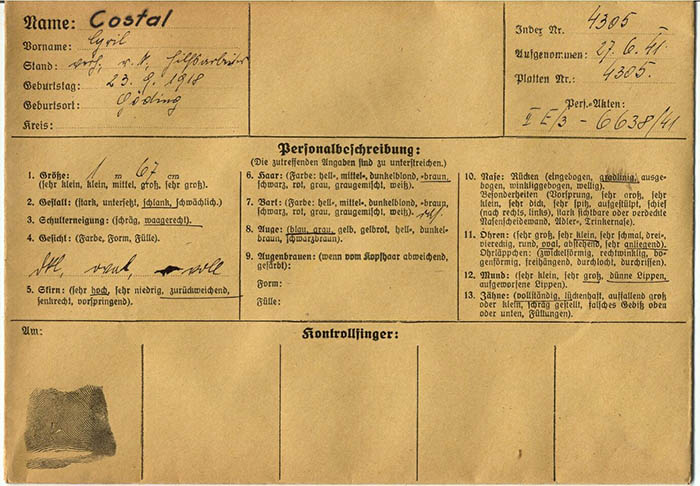 Name: Costal
Vorname: Cyril
Stand: verh., r. k., Hilfsarbeiter
Geburtstag: 23. 9. 1918
Geburtsort: Göding
Kreis:
Index Nr. 4305
Aufgenommen: 27. 6. 41
Platten Nr.: 4305.
Pers.-Akten:
II E/3 - 6638/41
Personalbeschreibung:
(Die zutreffenden Angaben sind zu unterstreichen.)
1. Größe: 1 m 67 cm
(sehr klein, klein, mittel, groß, sehr groß).
2. Gestalt: (stark, untersetzt, schlank, schwächlich).
3. Schulterneigung: (schräg, waagerecht).
4. Gesicht: (Farbe, Form, Fülle).
oval voll
5. Stirn: (sehr hoch, sehr niedrig, zurückweichend,
senkrecht, vorspringend).
6. Haar: (Farbe: hell-, mittel-, dunkelblond, -braun,
schwarz, rot, grau, graugemischt, weiß).
7. Bart: (Farbe: hell-, mittel-, dunkelblond, -braun,
schwarz, rot, grau, graugemischt, weiß).
8. Auge: (blau, grau, gelb, gelbrot, hell-, dunkel-
braun, schwarzbraun).
9. Augenbrauen: (wenn vom Kopfhaar abweichend,
gefärbt):
Form:
Fülle:
10. Nase: Rücken (eingebogen, gradlinig, ausge-
bogen, winkliggebogen, wellig).
Besonderheiten (Vorsprung, sehr groß, sehr
klein, sehr dick, sehr spitz, aufgestülpt, schief
(nach rechts, links), stark sichtbare oder verdeckte
Nasenscheidewand, Adler-, Trinkernase).
11. Ohren: (sehr groß, sehr klein, sehr schmal, drei-,
viereckig, rund, oval, abstehend, sehr anliegend).
Ohrläppchen: (zwickelförmig, rechtwinklig, bo-
genförmig, freihängend, durchlocht, durchrissen).
12. Mund: (sehr klein, sehr groß, dünne Lippen,
aufgeworfene Lippen).
13. Zähne: (vollständig, lückenhaft, auffallend groß
oder klein, schräg gestellt, falsches Gebiß oben
oder unten, Füllungen).
Am:
Kontrollfinger: